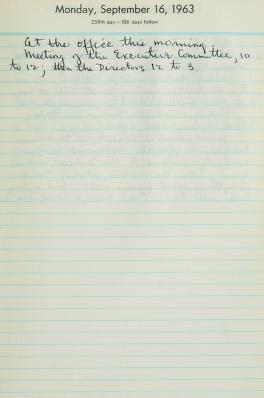 Monday, September 16, 1963
259th day—106 days follow
At the office this morning.
Meeting of the Executive Committee, 10
to 12; then the Directors 12 to 3.